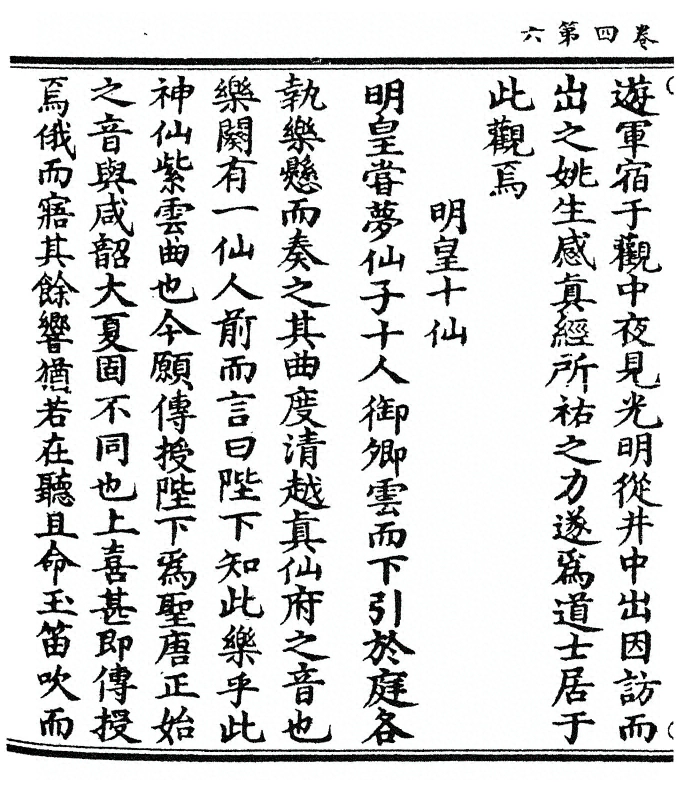 卷四第六
遊軍宿于觀中夜見光明從井中出因訪而
出之姚生感真經所祐之力遂爲道士居于
此觀焉
明皇十仙
明皇嘗夢仙子十人御卿雲而下引於庭各
執樂懸而奏之其曲度清越真仙府之音也
樂闋有一仙人前而言曰陛下知此樂乎此
神仙紫雲曲也今願傳授陛下爲聖唐正始
之音與咸韶大夏固不同也上喜甚即傳授
焉俄而寤其餘響猶若在聽且命玉笛吹而